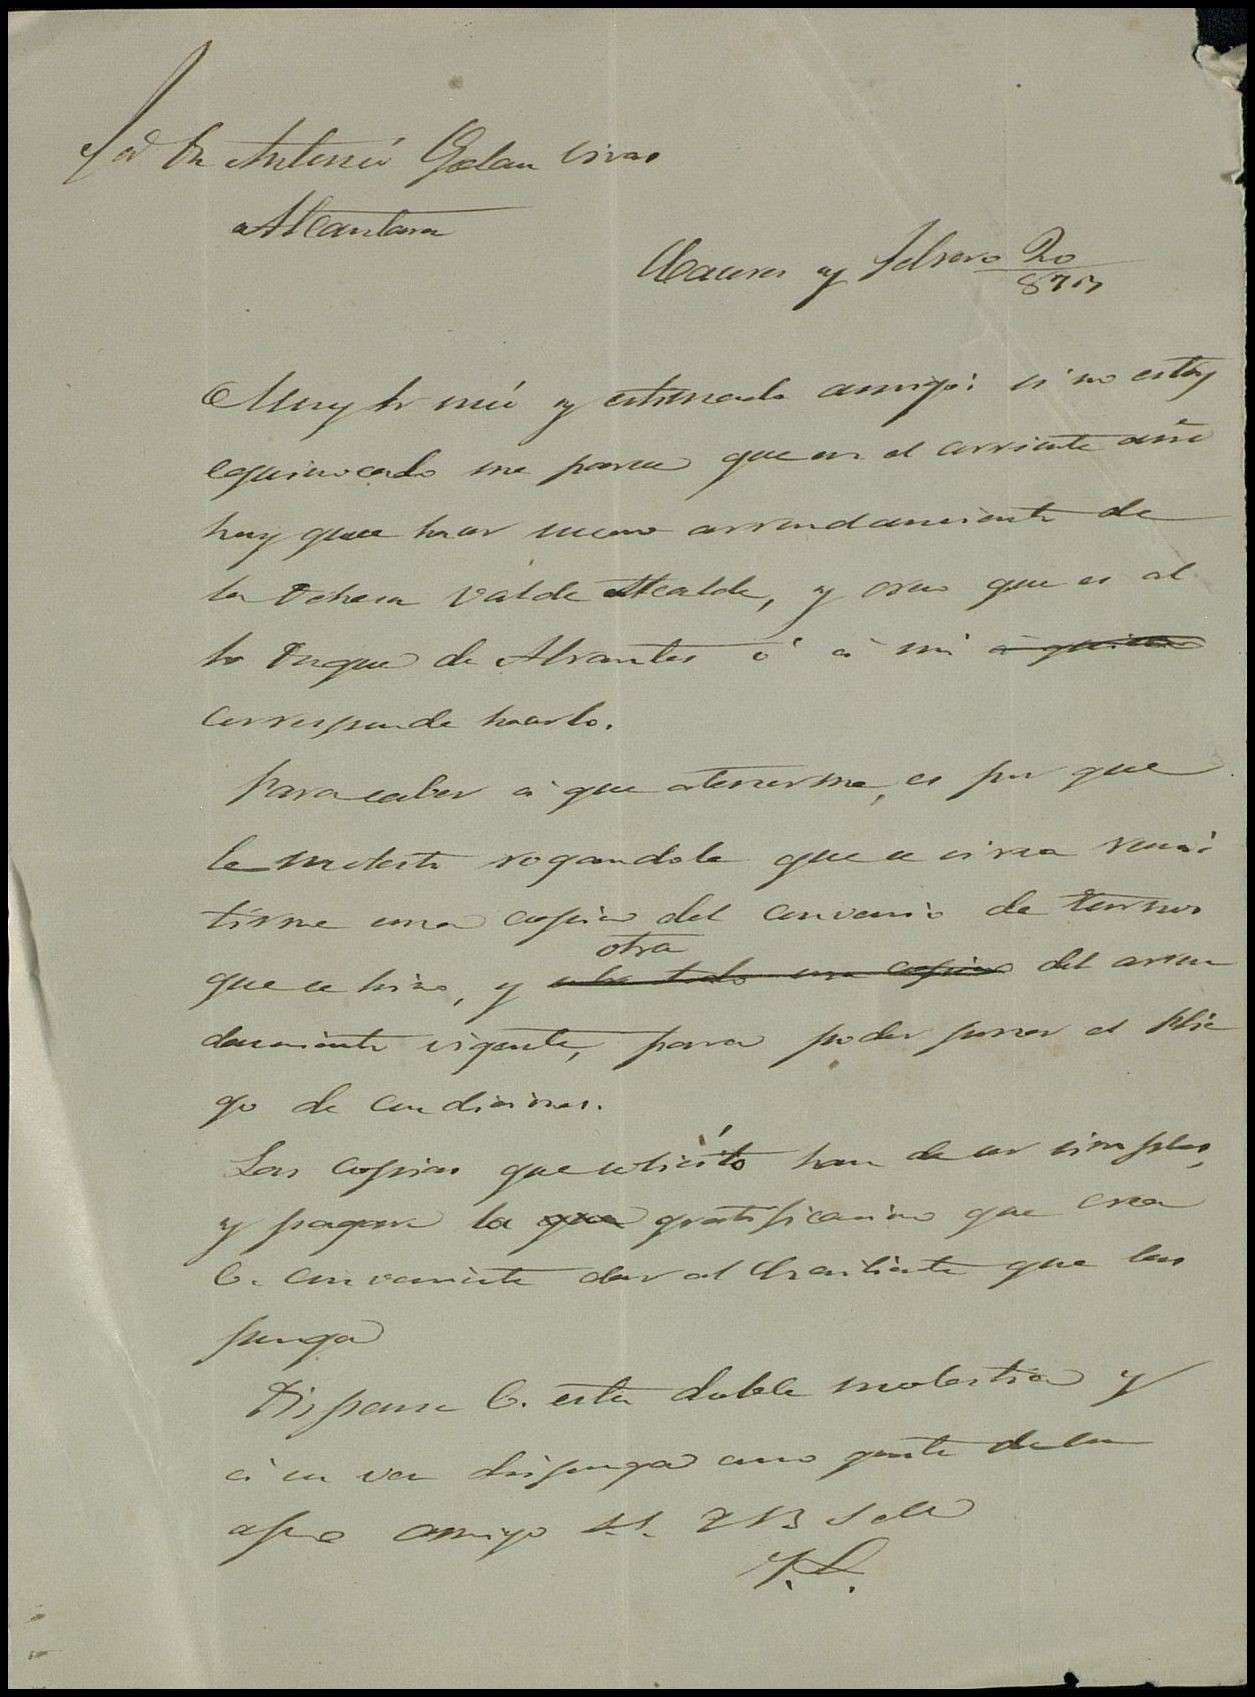 Sor Dn Antonio Galan Vivas
Alcantara
Caceres y Febrero 20
877
Muy Sr mio y estimado amigo: si no estoy
equivocado me parece que en el corriente año
hay que hacer nuevo arrendamiento de
la Dehesa Valde Alcalde, y creo que es al
Sr Duque de Abrantes ó á mi á quien
corresponde hacerlo.
Para saber á que atenerme, es por que
le molesto rogandole que se sirva remi
tirme una copia del convenio de turnos
otra
que se hizo, y sobre todo una copia del arren
damiento vigente, para poder poner el plie
go de condiciones.
Las copias que solicito han de ser simples,
y pagare la que gratificacion que crea
V. conveniente dar al Escribiente que las
ponga
Dispense V. esta doble molestia y
á su vez disponga como guste de su
afmo amigo S.S. Q B S M